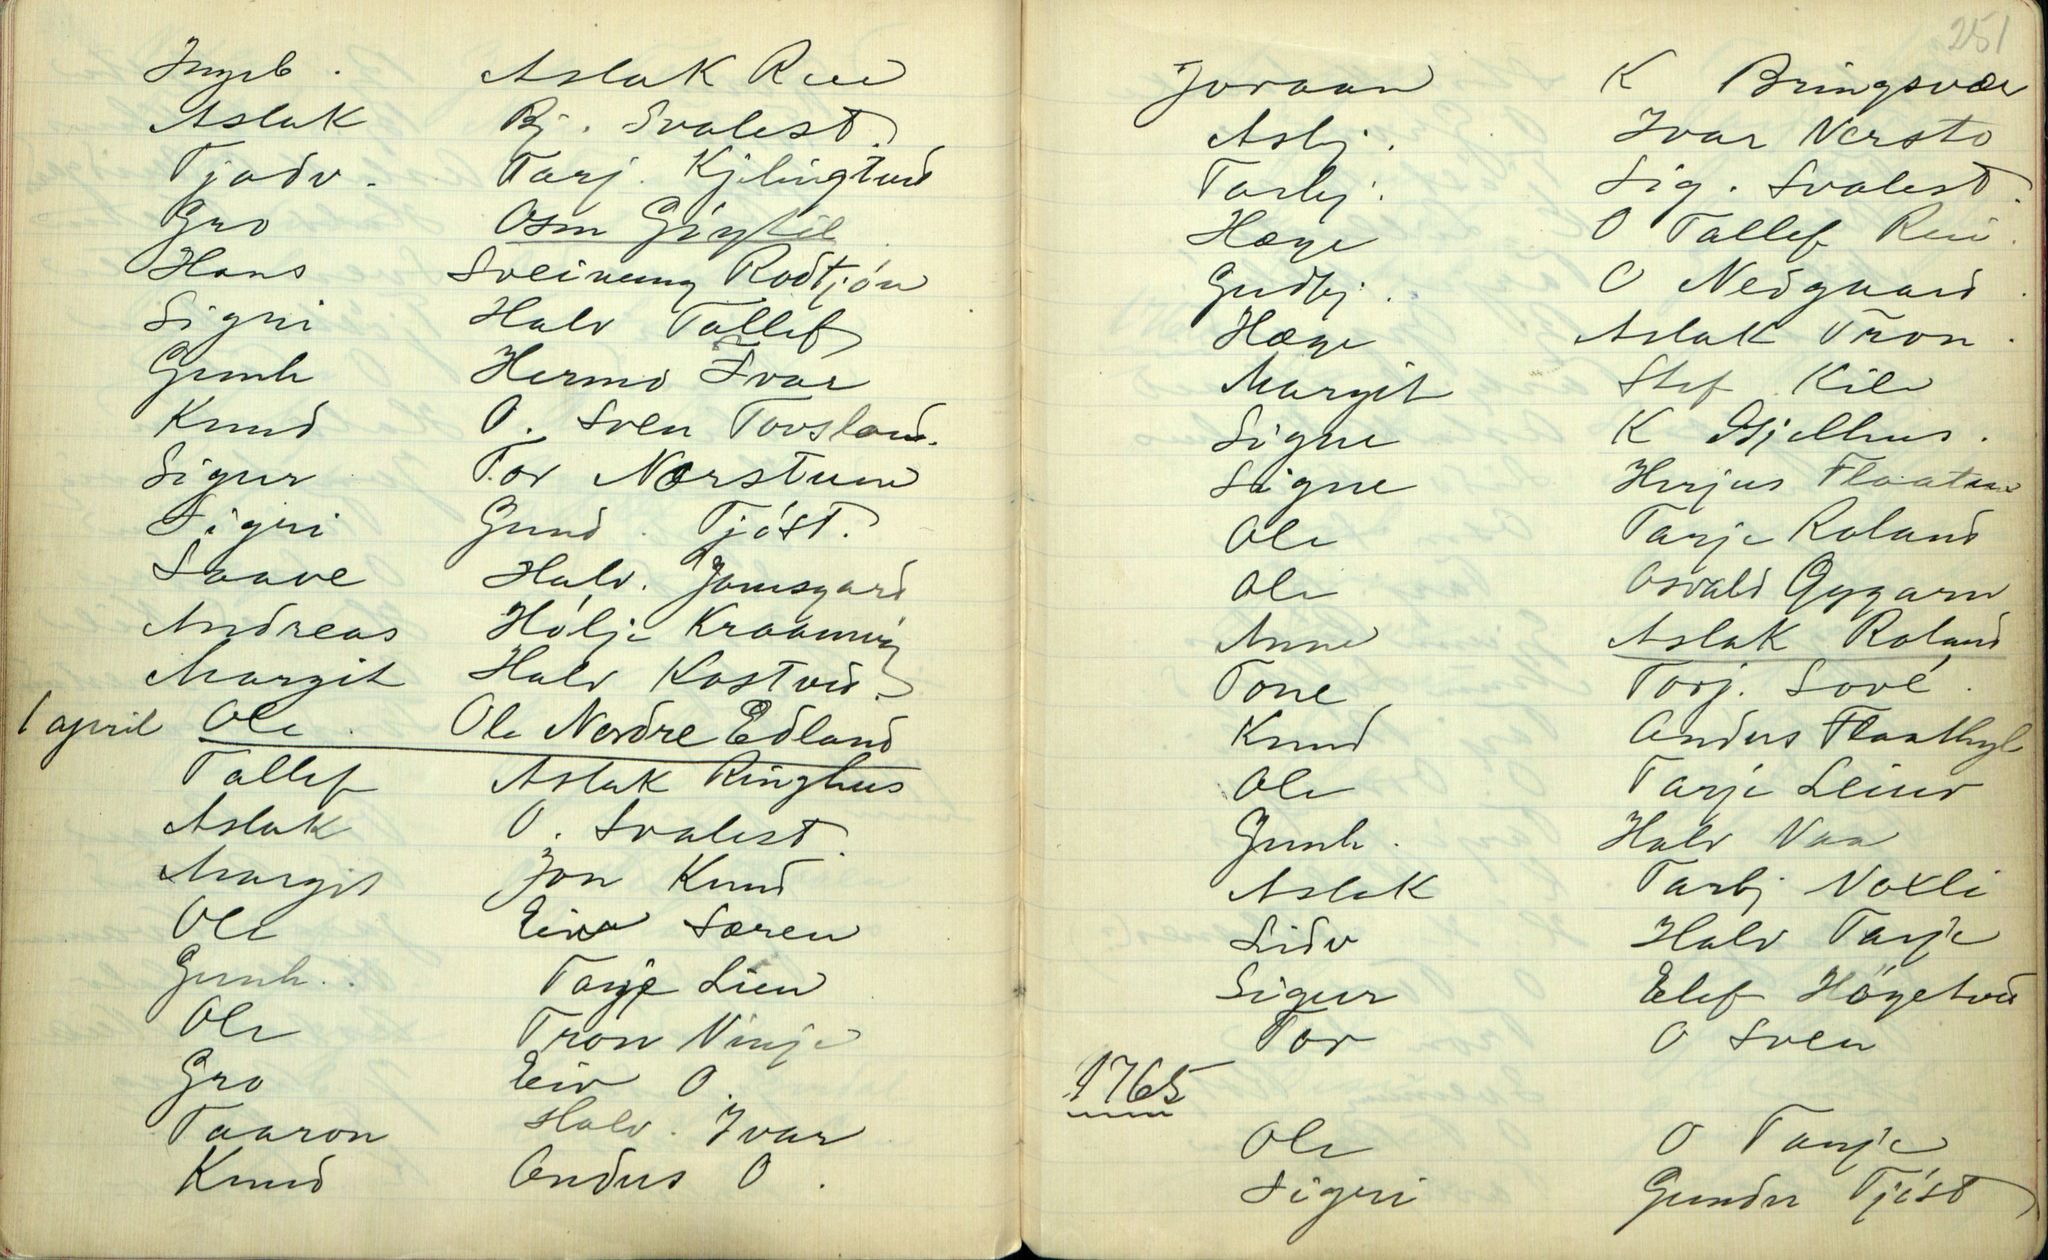 Ingeb. Aslak Rui
Aslak Bj. Svalest.
Tjødv. Tarj. Kjilingtveit
Gro Osm
Hans Sveinung Rodtjón
Sigri Halv Tallef
Gunh Hermo Ivar
Knud O. Sven Tovsland.
Sigur Tor Nærstuen
Sigri Gund. Tjóst.
Saave Halv. Jamsgard
Andreas Hólje
Margit Halv Kostvei.
1 april Ole. Ole Nordre Edland
Tallef Aslak Ringhus
Aslak O. Svalest.
Margit Jon Knud
Ole Eiv Søren
Gunh. Tarje Lien
Ole Tron Vinje
Gro Eiv O.
Taaron Halv. Ivar
Knud Andus O.
251
Joraan K Bringsvær
Asbj. Ivar Nersto
Tarbj. Sig. Svalest.
Hæge O Tallef Rui.
Gudbj. O Nedgaard.
Hæge Aslak Tron.
Margit Stef Kile
Signe K Gjelhus.
Signe Herjus
Ole Tarje Roland
Ole Osvald
Anne Aslak Roland
Tone Torj. Sové.
Knud Andus Flaathyl
Ole Tarje
Gunh. Halv Vaa
Aslak Tarbj Vaxli
Lidv Halv Tarje
Sigur Elef Högetvei
Tor O Sven
1765
Ole O Tarje
Sigri Gunder Tjóst